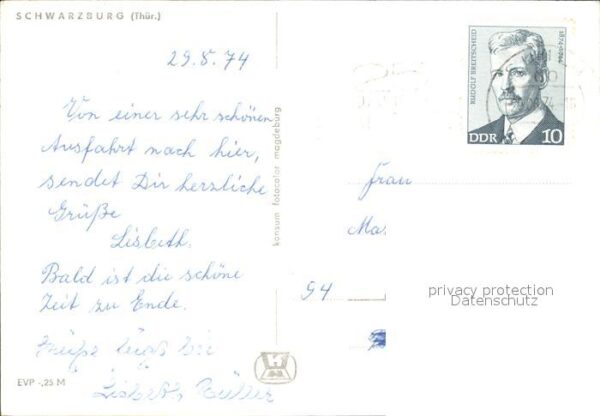 SCHWARZBURG (Thür.)
29.5.74
Von einer sehr schönen
Ausfahrt nach hier,
sendet Dir herzliche
Grüße
Lisbeth.
Bald ist die schöne
Zeit zu Ende.
Lisbeth
EVP -,25 M
konsum fotocolor magdeburg
RUDOLF BREITSCHEID
1874-1944
DDR 10
Frau
94
privacy protection
Datenschutz